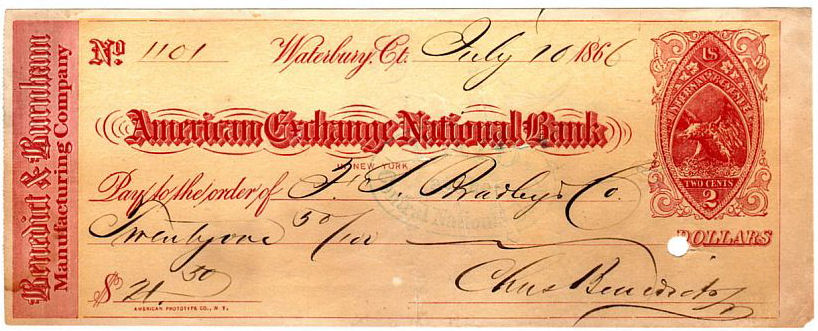 Benedict & Burnham
Manufacturing Company
No 1101 Waterbury, Ct. July 10 1866
US
INTERNAL REVENUE
TWO CENTS
2
American Exchange National Bank
NEW YORK
Pay to the order of F. S. Bradley & Co.
Twenty one 50/100 DOLLARS
$ 21.50 Chas Benedict
AMERICAN PHOTOTYPE CO., N. Y.